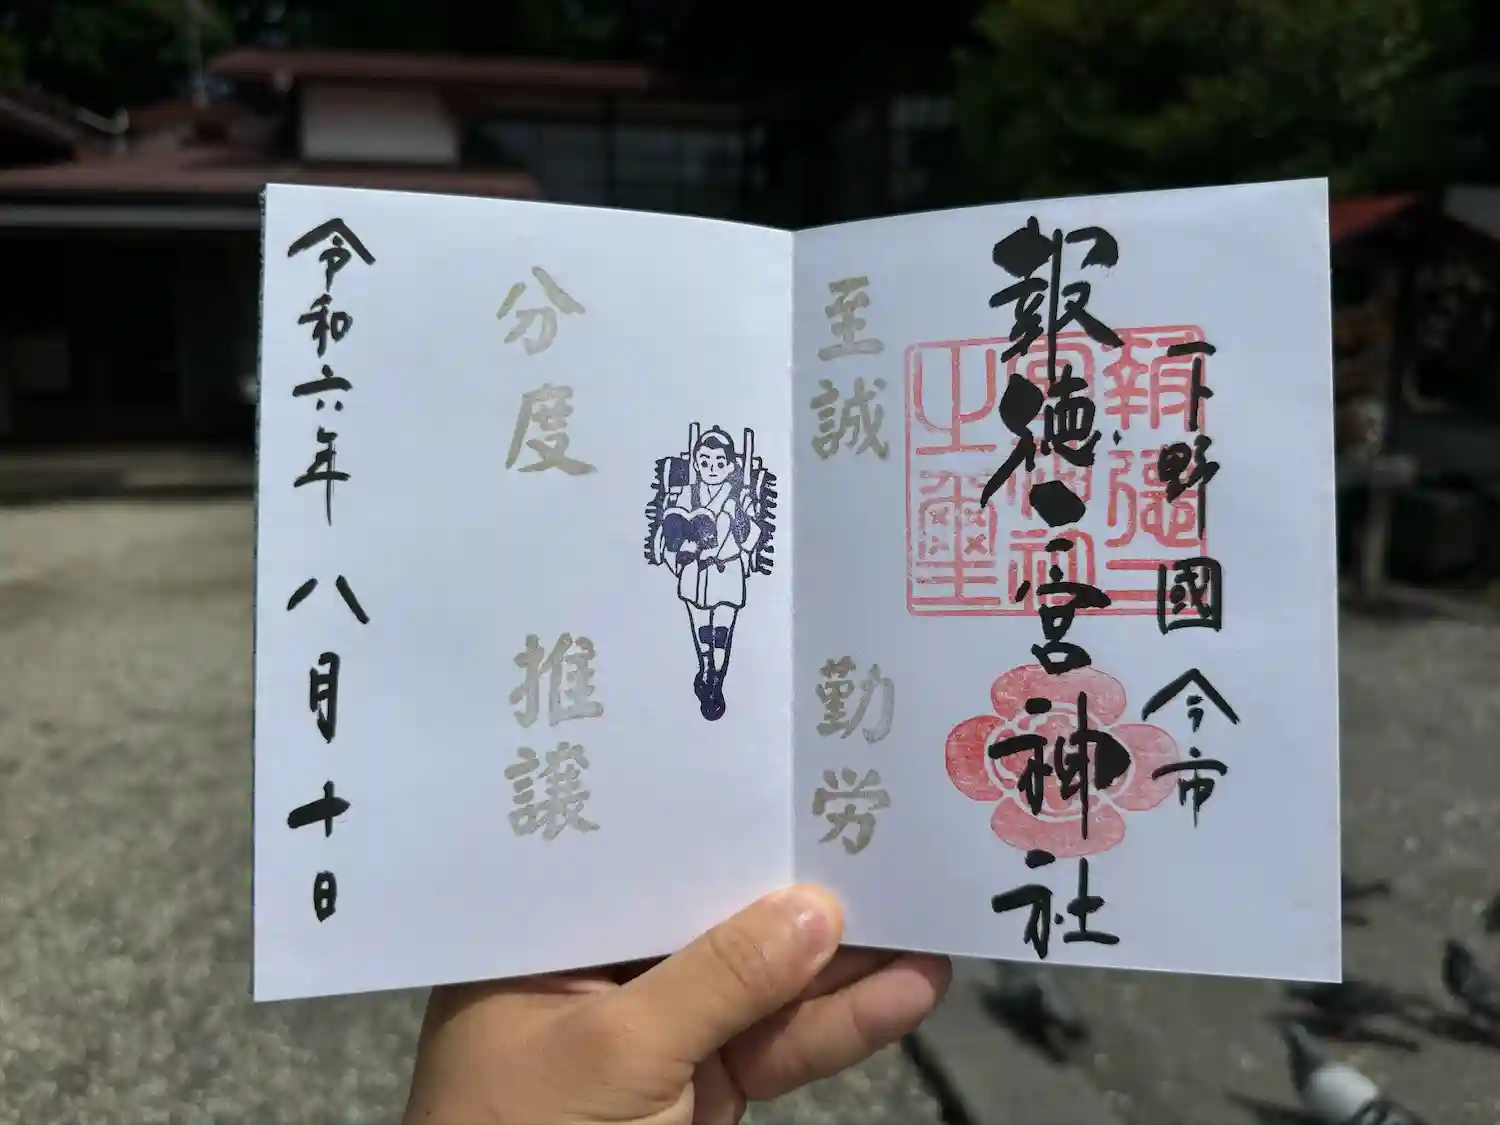 下野國 今市
報徳二宮神社
報徳二宮神社之璽
至誠 勤労
分度 推譲
令和六年 八月十日